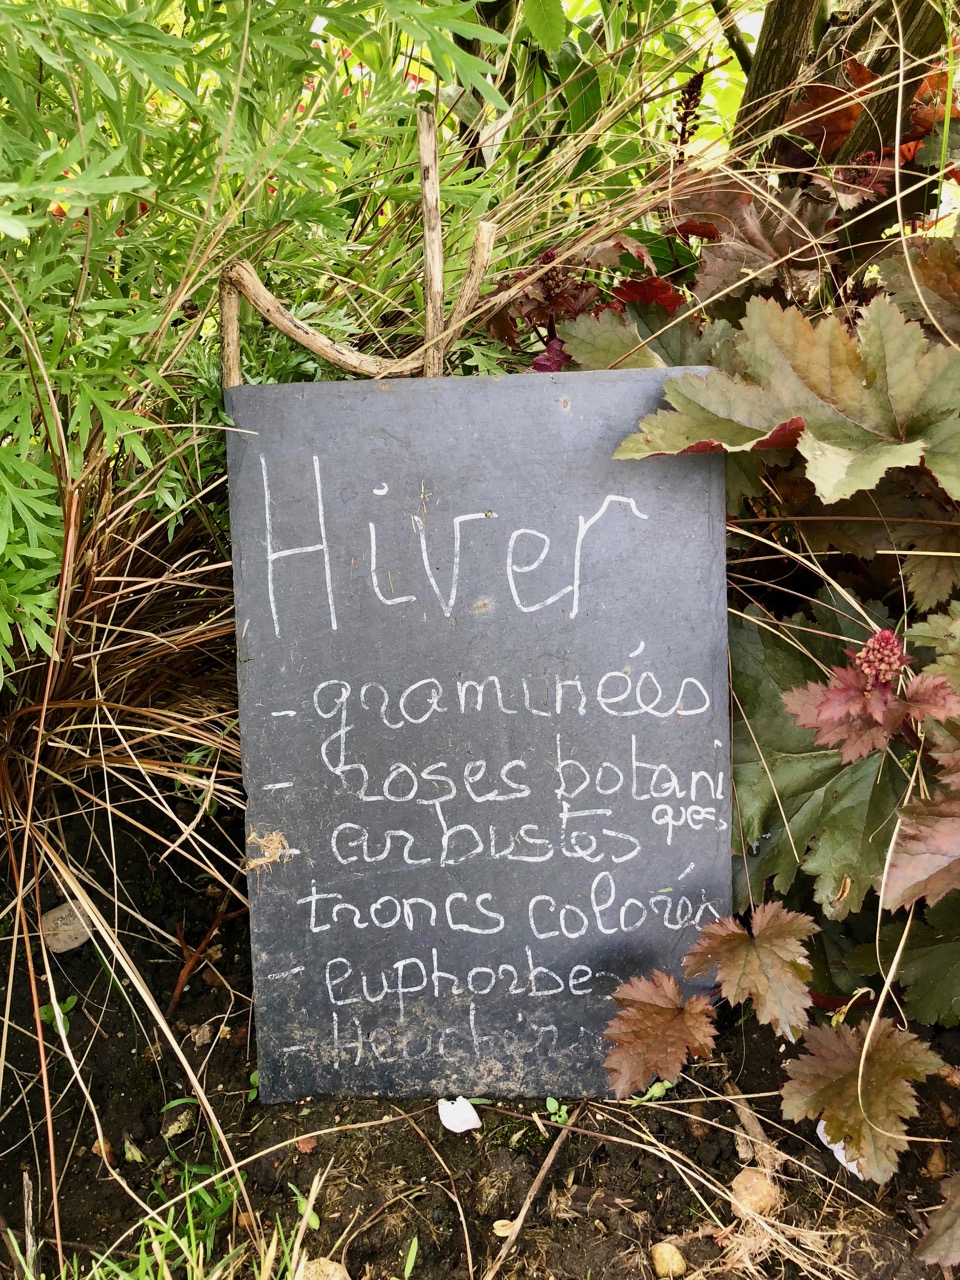 Hiver
- graminées
- roses botani
ques
- arbustes
- troncs colorés
- euphorbe